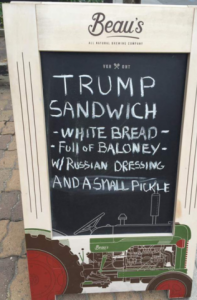 Beau's
ALL NATURAL BREWING COMPANY
TRUMP
SANDWICH
-WHITE BREAD-
-FULL OF BALONEY-
W/ RUSSIAN DRESSING
AND A SMALL PICKLE
Beau's